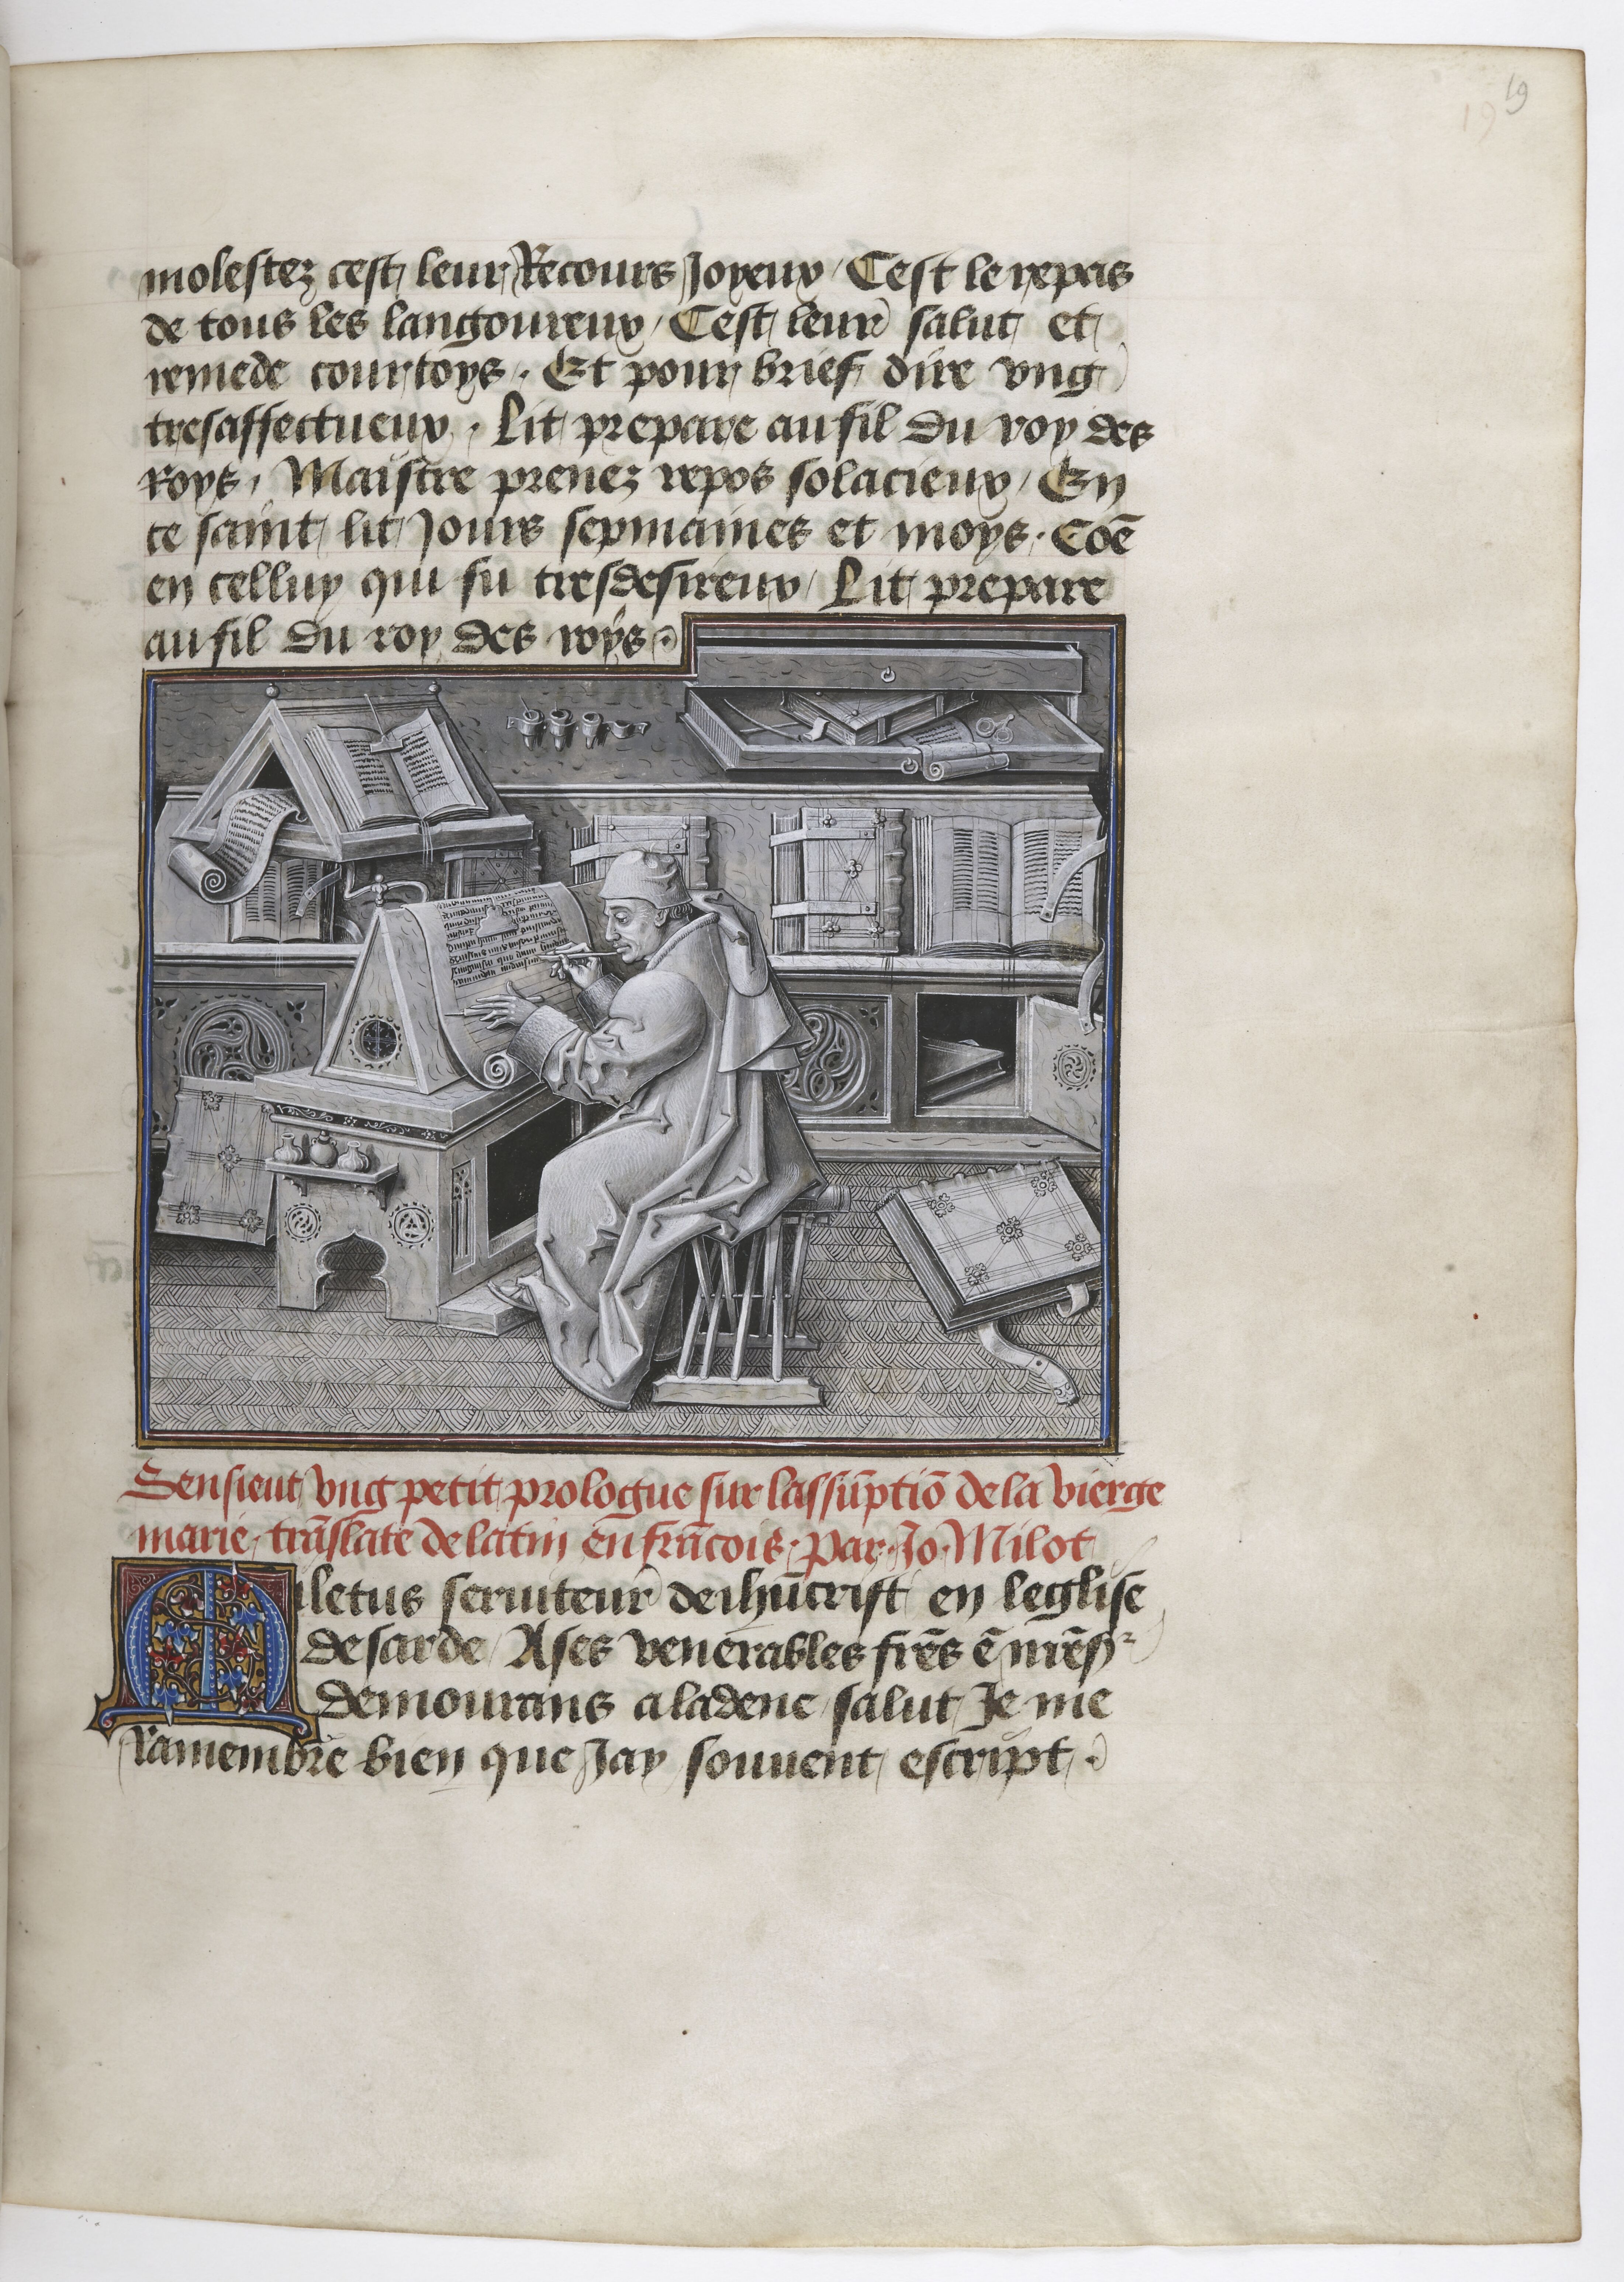 19
19
molestez cest leur Recours Joyeux / Cest le repas
de tous les langoureux / Cest leur salut et
remede courtoys . Et pour brief dire vng
tresaffectueux . Lit prepare au fil du roy des
Roys , Maistre prenez repos solacieux / En
ce saint lit Jours sepmaines et moys . Coē
en celluy qui fu tresdesireux / Lit prepare
au fil du roy des roys .
Sensieut vng petit prologue sur lassūptiō de la vierge
marie , trāslate de latin en frācois . par . Jo . Milot
Miletus seruiteur de ihūcrist en leglise
de sarde / A ses venerables frēs
demourans a ladene / salut / Je me
Ramembre bien que Jay souuent escript .